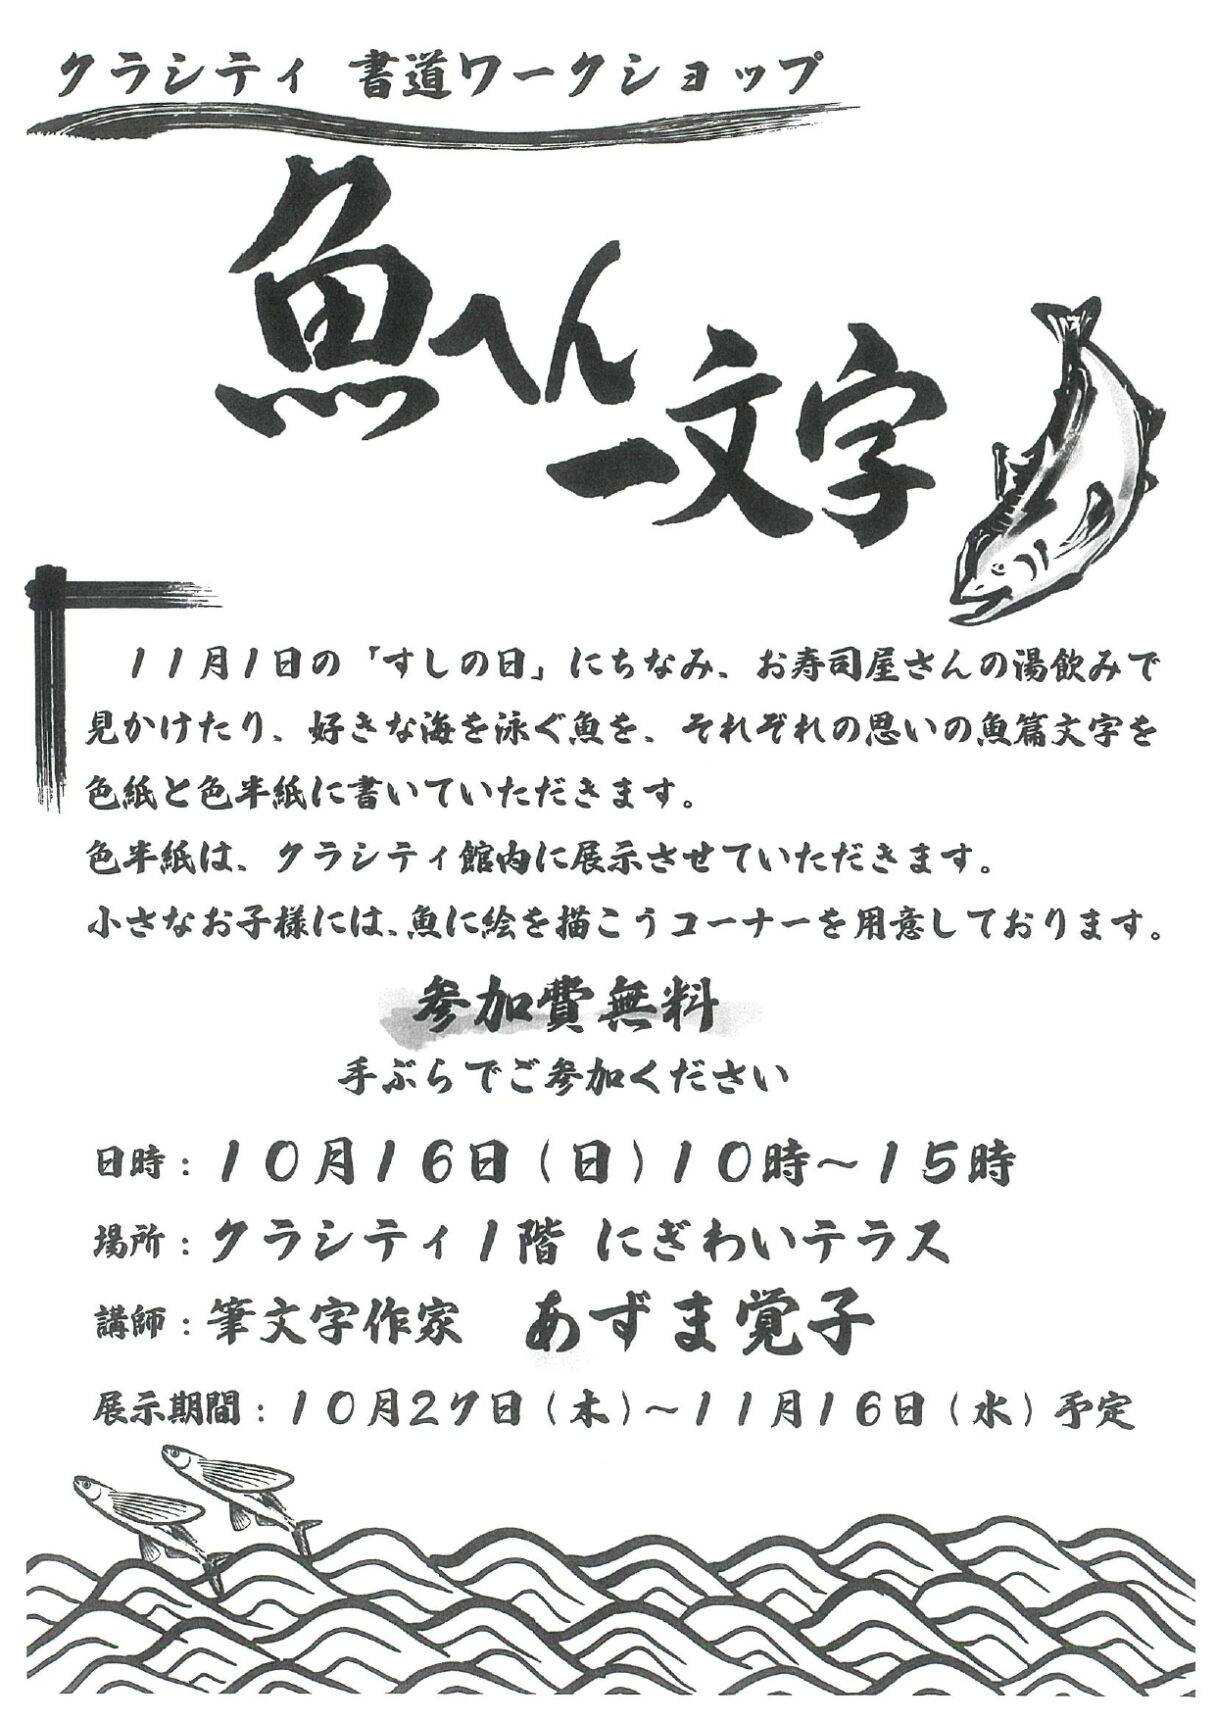 クラシティ 書道ワークショップ
魚へん
一文字
11月1日の「すしの日」にちなみ、お寿司屋さんの湯飲みで
見かけたり、好きな海を泳ぐ魚を、それぞれの思いの魚篇文字を
色紙と色半紙に書いていただきます。
色半紙は、クラシティ館内に展示させていただきます。
小さなお子様には、魚に絵を描こうコーナーを用意しております。
参加費無料
手ぶらでご参加ください
日時：10月16日（日）10時～15時
場所：クラシティ1階 にぎわいテラス
講師：筆文字作家 あずま覚子
展示期間：10月27日（木）～11月16日（水）予定